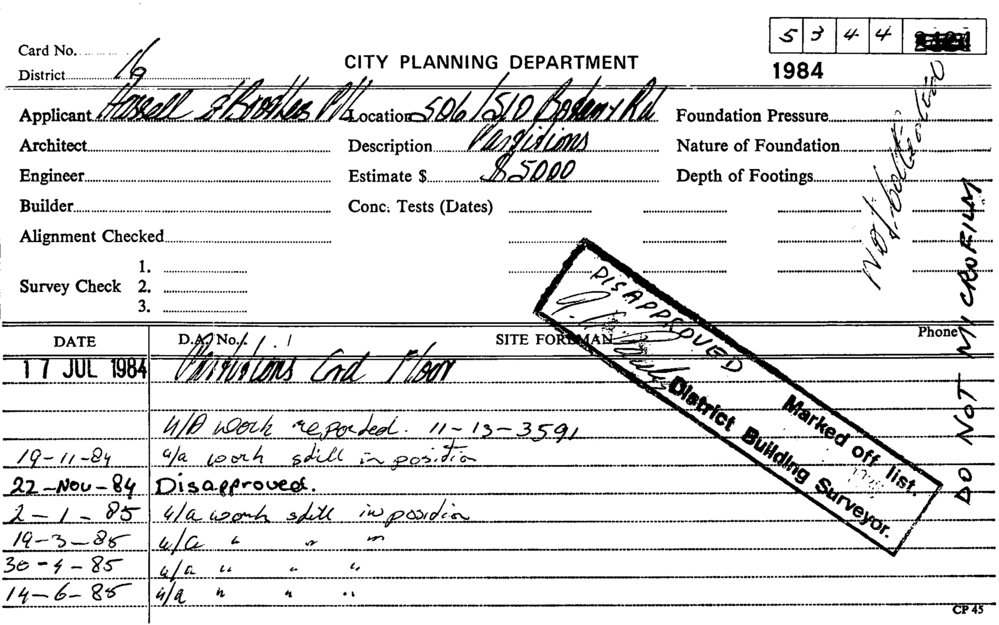 5 3 4 4
Card No.
CITY PLANNING DEPARTMENT
District
1984
Applicant Hassell & Brothers P/L Location 506/510 Rd Foundation Pressure
Architect Description Partitions Nature of Foundation
Engineer Estimate $ $5000 Depth of Footings
Builder Conc. Tests (Dates)
Alignment Checked
Survey Check 1. 2. 3.
Not
DO NOT MICROFILM
DATE D.A. No. SITE FOREMAN Phone
17 JUL 1984 Partitions Grd Floor
u/a work reported. 11-13-3591
19-11-84 u/a work still in position
22-Nov-84 Disapproved.
2-1-85 u/a work still in position
19-3-85 u/a " " "
30-4-85 u/a " " "
14-6-85 u/a " " "
DISAPPROVED
Marked off list.
District Building Surveyor.
CP 45